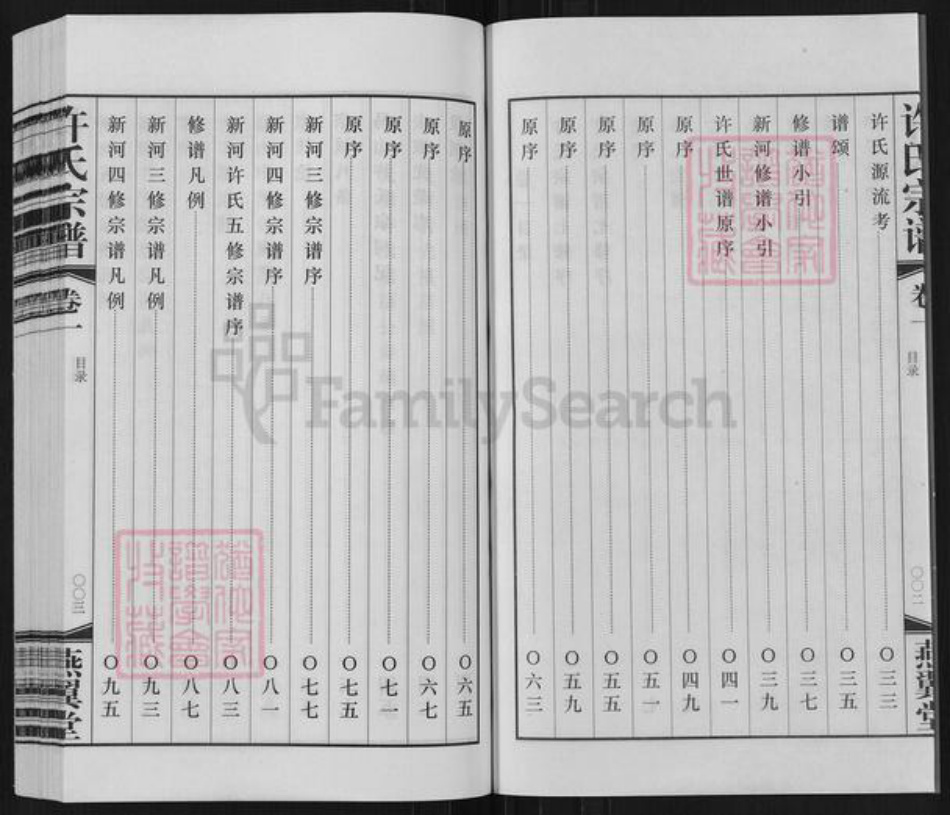 许氏宗谱 卷一 目录 〇〇二 燕翼堂
许氏源流考 〇三三
谱颂 〇三五
修谱小引 〇三七
新河修谱小引 〇三九
许氏世谱原序 〇四一
原序 〇四九
原序 〇五一
原序 〇五五
原序 〇五九
原序 〇六三
原序 〇六五
原序 〇六七
原序 〇七一
原序 〇七五
新河三修宗谱序 〇七七
新河四修宗谱序 〇八一
新河许氏五修宗谱序 〇八三
修谱凡例 〇八七
新河三修宗谱凡例 〇九三
新河四修宗谱凡例 〇九五
许氏宗谱 卷一 目录 〇〇三 燕翼堂
FamilySearch